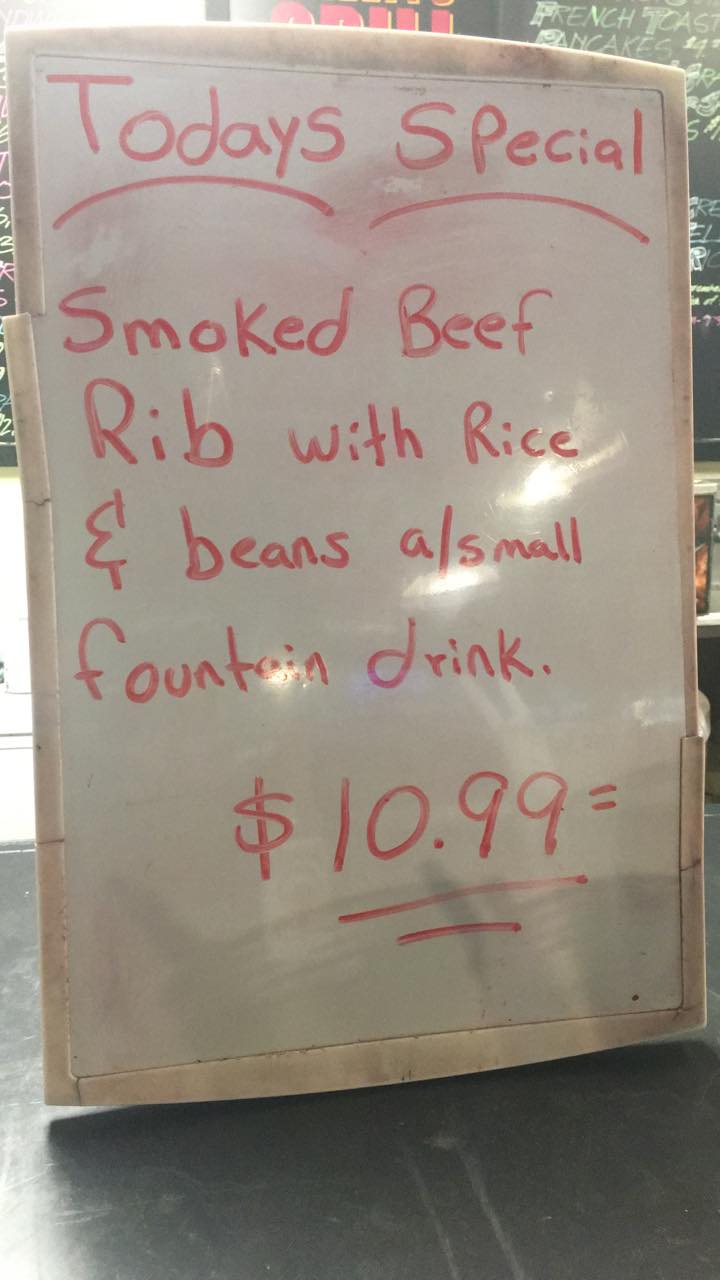 GRILL
FRENCH TOAST
PANCAKES
Todays Special
Smoked Beef
Rib with Rice
& beans a/small
fountain drink.
$10.99=